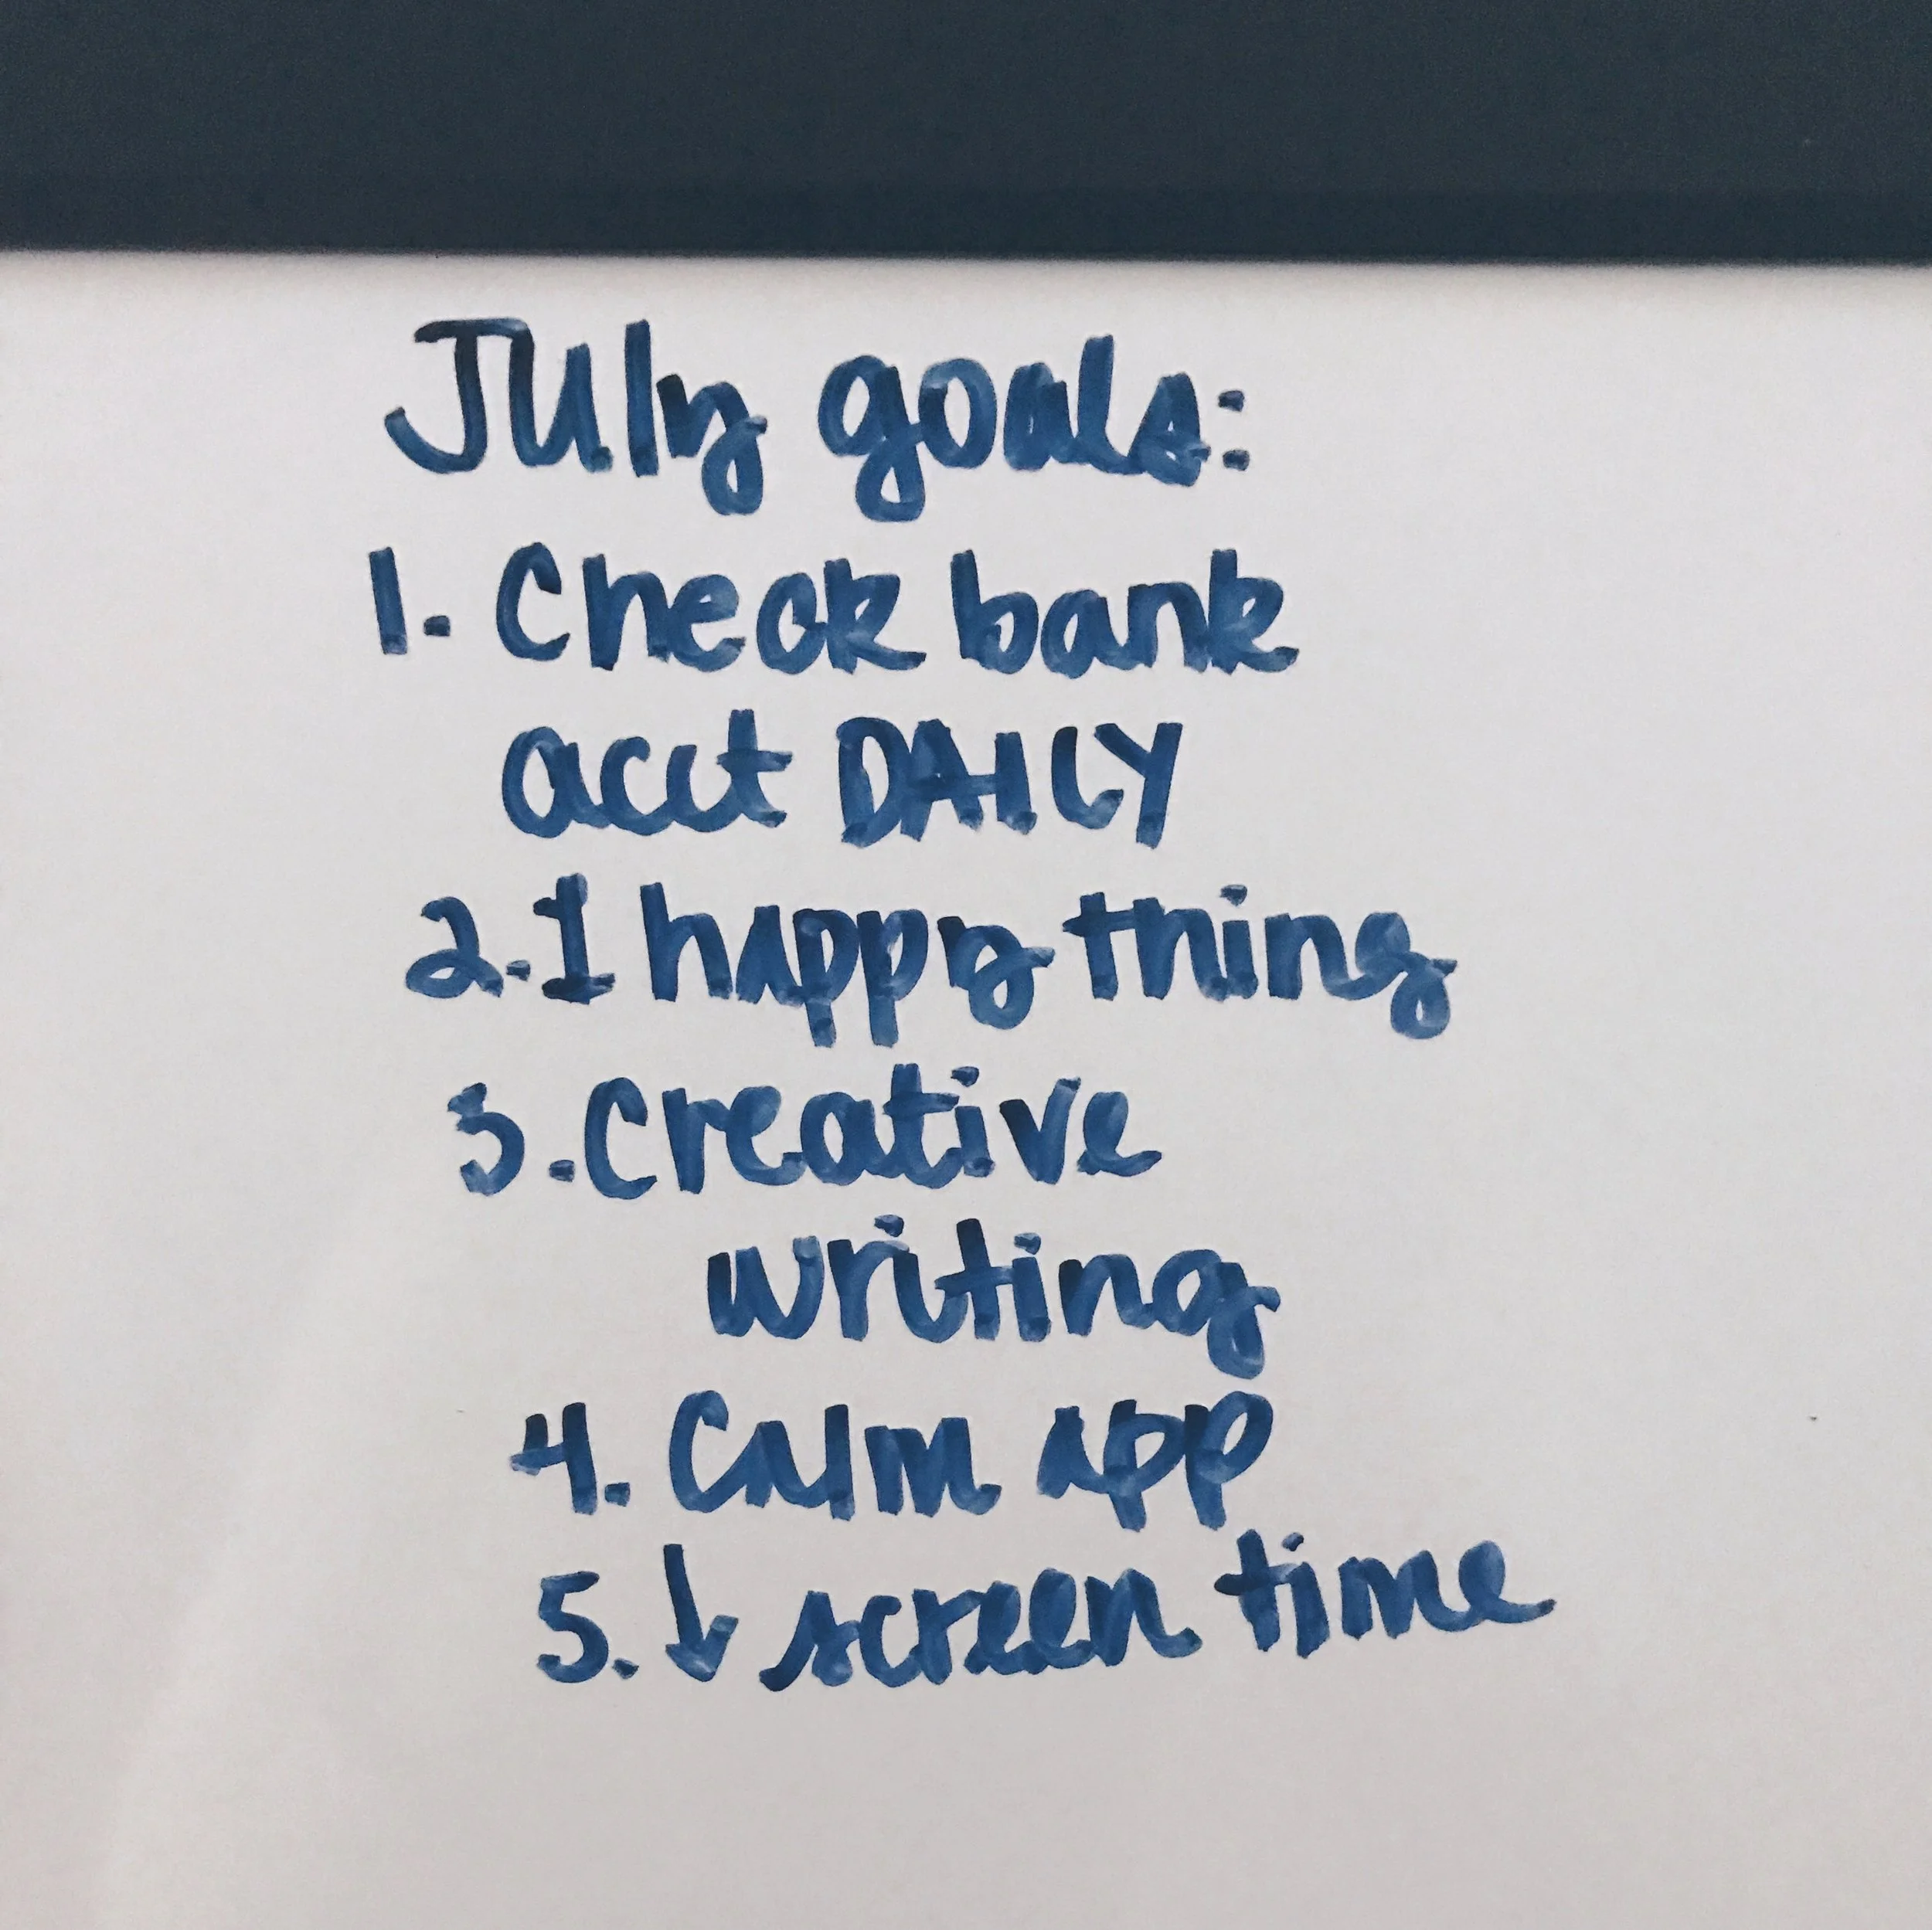 July goals:
1. Check bank
acct DAILY
2. 1 happy thing
3. Creative
writing
4. Calm app
5. ↓ screen time